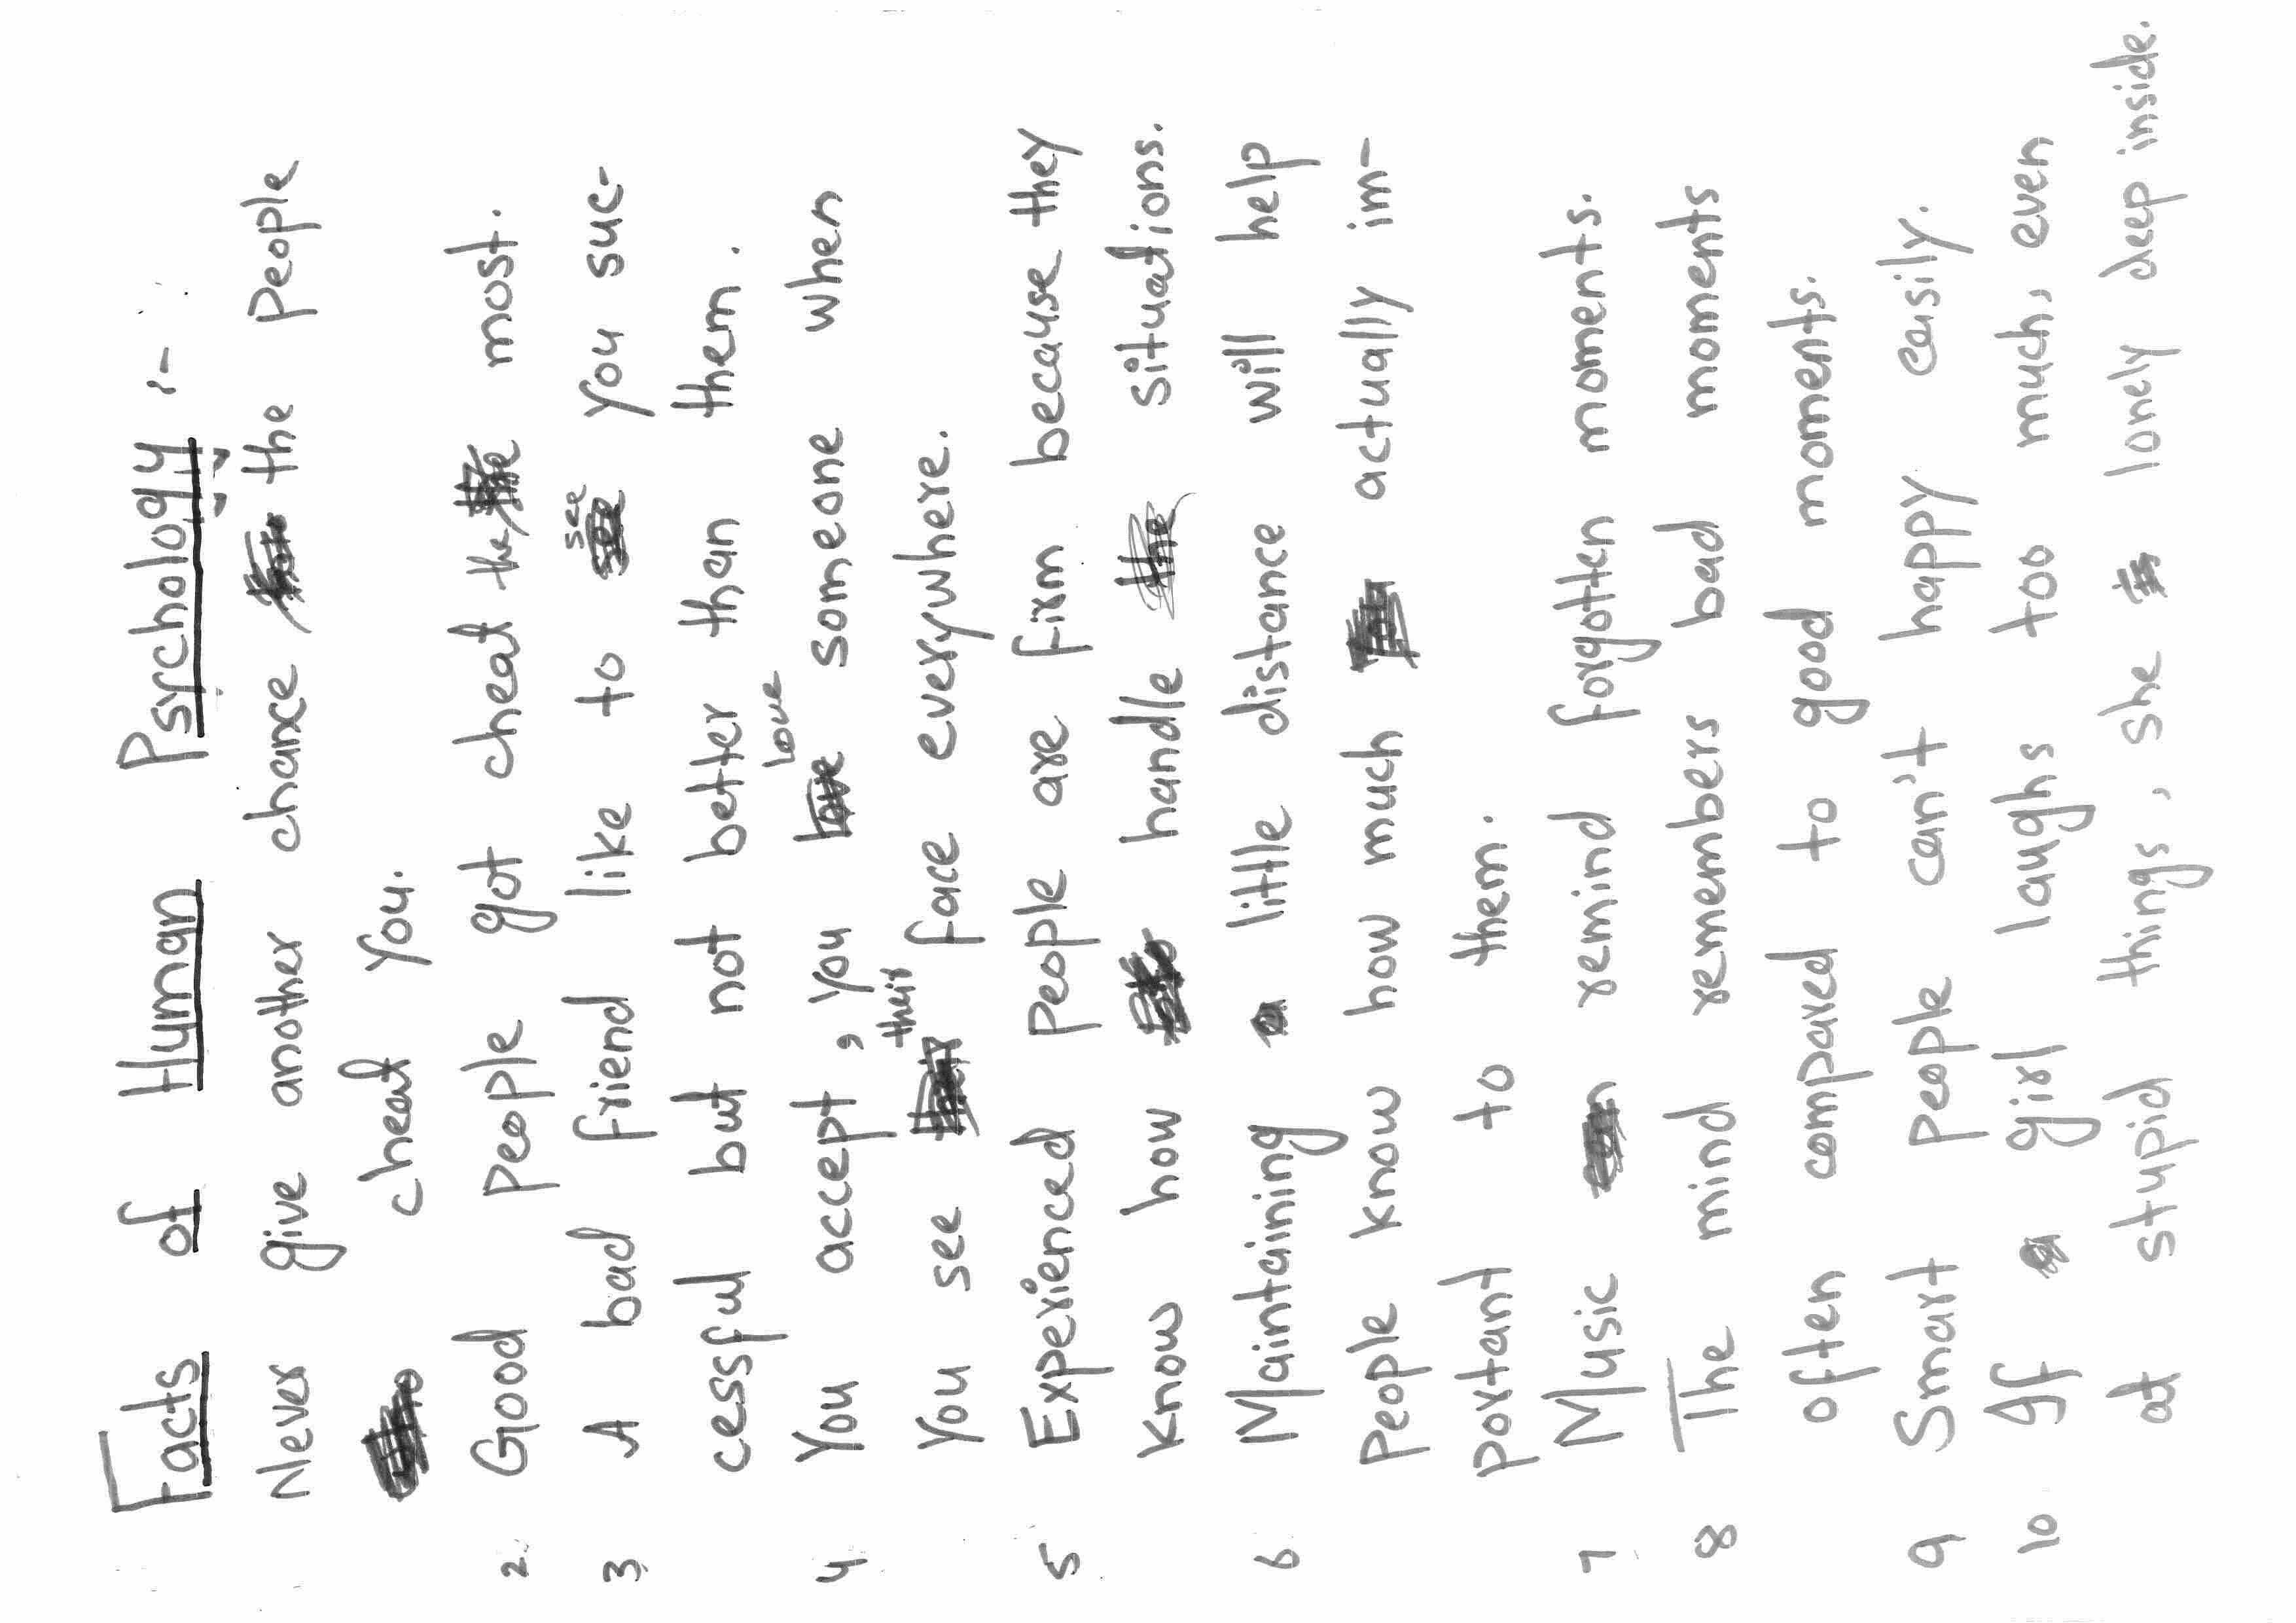 Facts of Human Psychology :-
Never give another chance the people
cheat you.
2. Good people got cheat the most.
3 A bad friend like to see you suc-
cessful but not better than them.
4. You accept, you love someone when
you see their face everywhere.
5 Experienced people are firm because they
know how handle situations.
6. Maintaining little distance will help
people know how much actually im-
portant to them.
7 Music remind forgotten moments.
8 The mind remembers bad moments
often compared to good moments.
9 Smart people can't happy easily.
10 If girl laughs too much, even
at stupid things, she lonely deep inside.